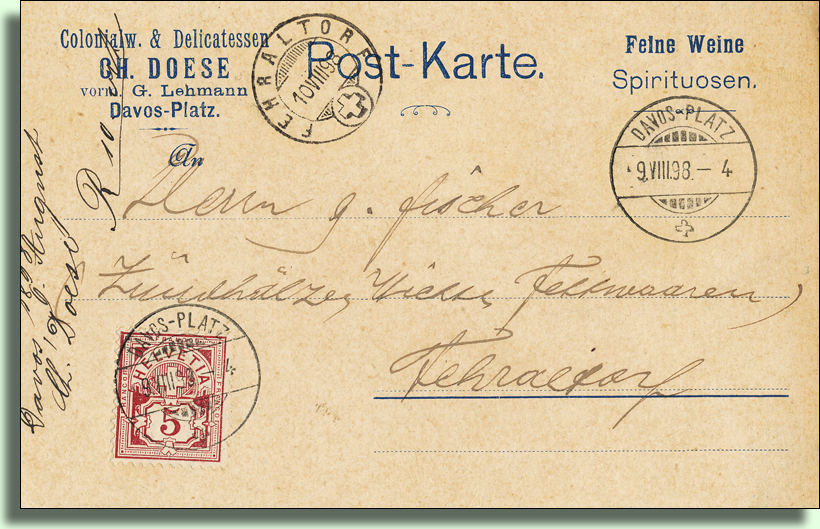 Colonialw. & Delicatessen
CH. DOESE
vorm. G. Lehmann
Davos-Platz.
Post-Karte.
Feine Weine
Spirituosen.
FEHRALTORF
10 VIII 98
DAVOS-PLATZ
9.VIII.98.–4
An
Herrn G. Fischer
Zündhölzer, Wichse, Fettwaaren
Fehraltorf
DAVOS-PLATZ
9.VIII.98
HELVETIA
5
Davos 9. August
Ch. Doese